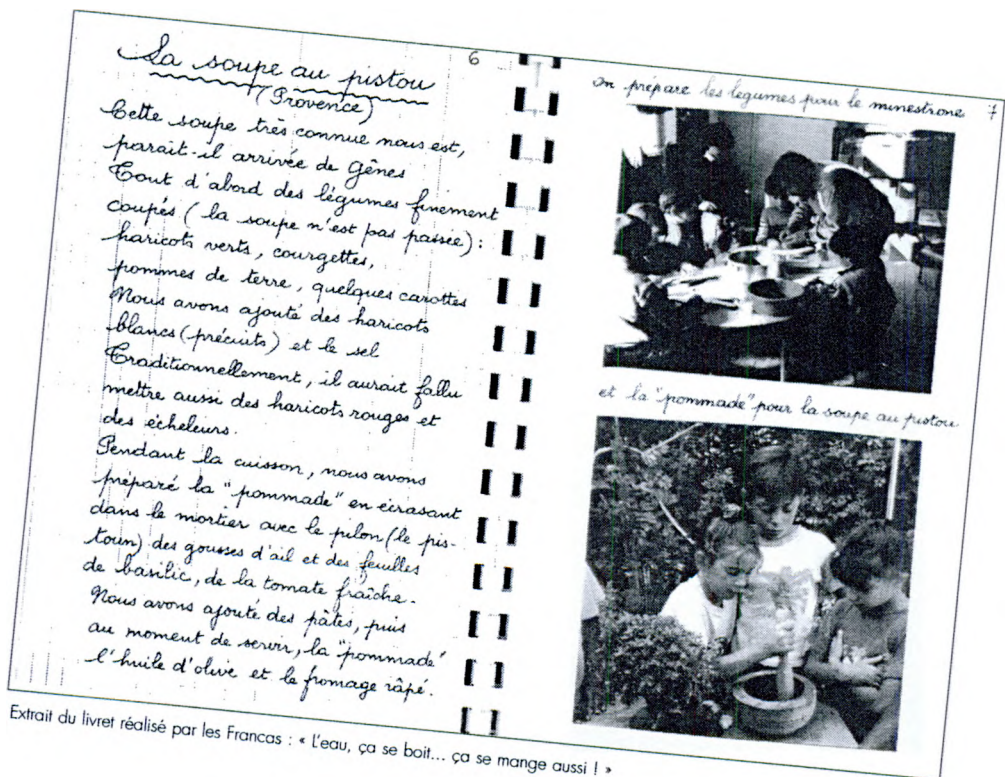 La soupe au pistou
(Provence)
Cette soupe très connue nous est,
parait-il arrivée de Gênes
Tout d'abord des légumes finement
coupés (la soupe n'est pas passée):
haricots verts, courgettes,
pommes de terre, quelques carottes
Nous avons ajouté des haricots
blancs (précuits) et le sel
Traditionnellement, il aurait fallu
mettre aussi des haricots rouges et
des écheleurs.
Pendant la cuisson, nous avons
préparé la "pommade" en écrasant
dans le mortier avec le pilon (le pis-
toun) des gousses d'ail et des feuilles
de basilic, de la tomate fraîche.
Nous avons ajouté des pâtes, puis
au moment de servir, la "pommade"
l'huile d'olive et le fromage râpé.
6
on prépare les légumes pour le minestrone
7
et la "pommade" pour la soupe au pistou
Extrait du livret réalisé par les Francas : « L'eau, ça se boit... ça se mange aussi ! »